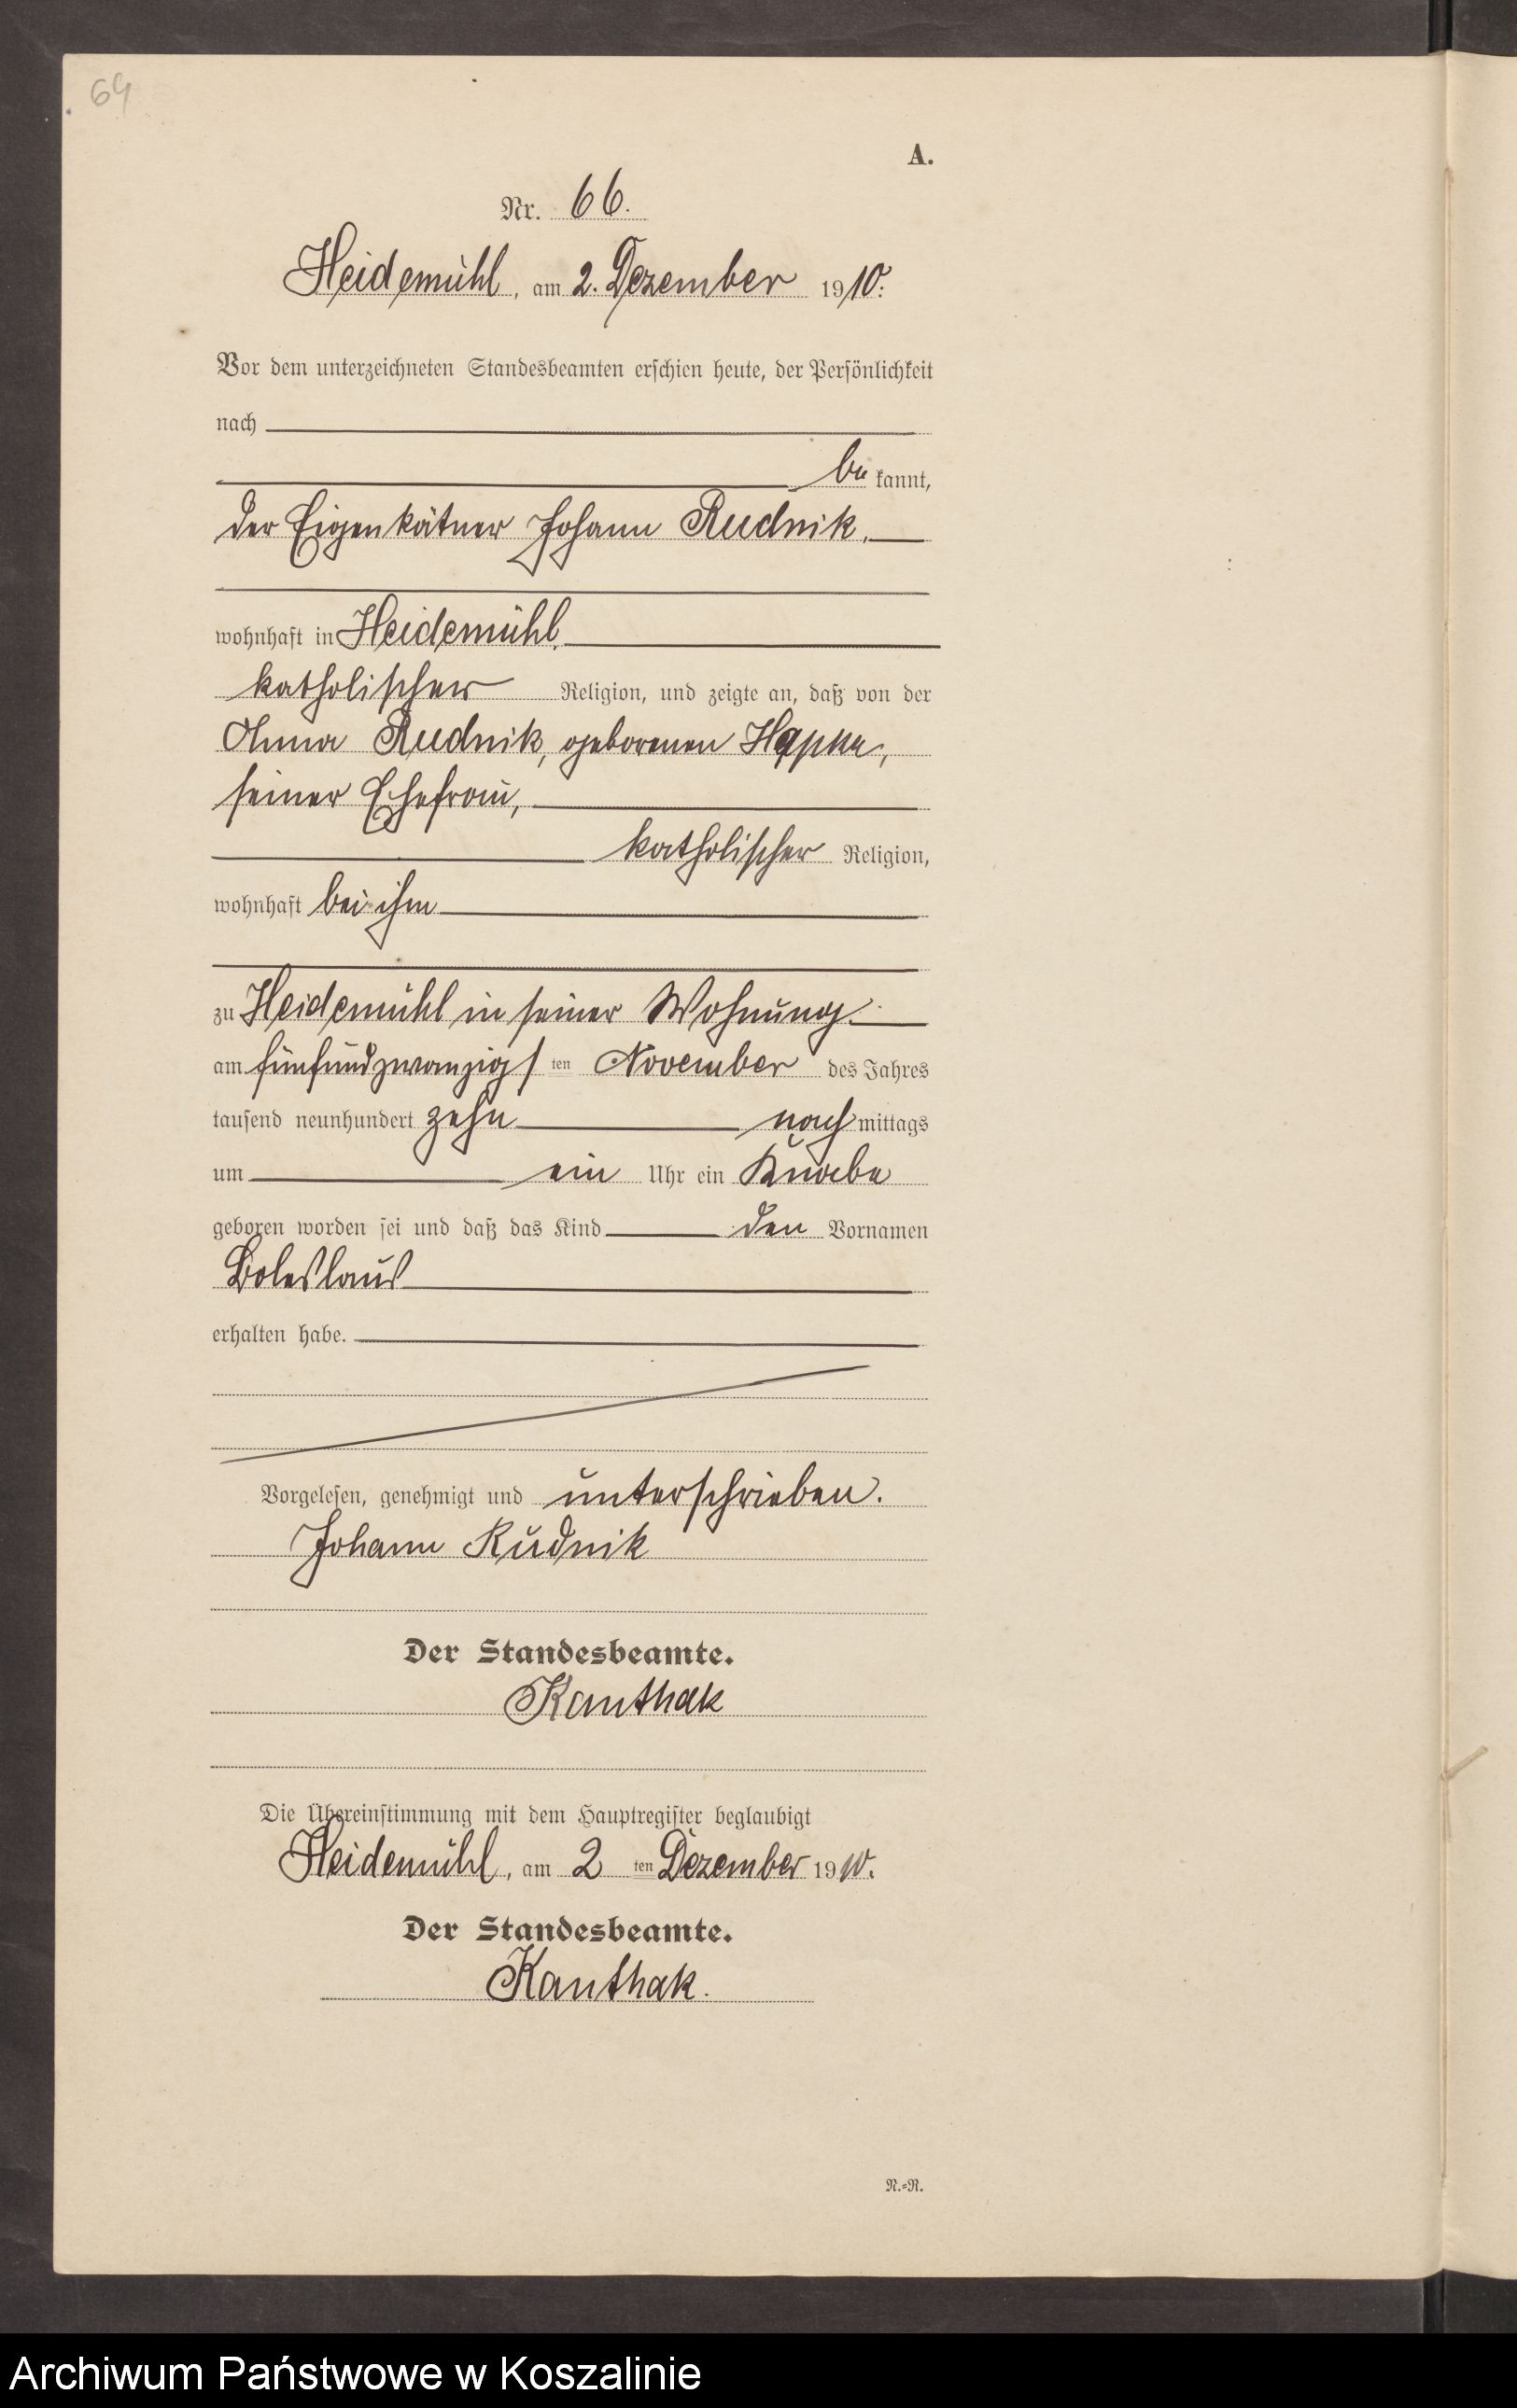 64
A.
Nr. 66.
Heidemühl, am 2. Dezember 1910.
Vor dem unterzeichneten Standesbeamten erschien heute, der Persönlichkeit
nach
be kannt,
der Eigenkätner Johann Rudnik,
wohnhaft in Heidemühl,
katholischer Religion, und zeigte an, daß von der
Anna Rudnik, geborenen
seiner Ehefrau,
katholischer Religion,
wohnhaft bei ihm
zu Heidemühl in seiner Wohnung
am fünfundzwanzigs ten November des Jahres
tausend neunhundert zehn nach mittags
um ein Uhr ein Knabe
geboren worden sei und daß das Kind den Vornamen
Boleslaus
erhalten habe.
Vorgelesen, genehmigt und unterschrieben.
Johann Rudnik
Der Standesbeamte.
Kanthak
Die Übereinstimmung mit dem Hauptregister beglaubigt
Heidemühl, am 2 ten Dezember 1910.
Der Standesbeamte.
Kanthak.
N.=N.
Archiwum Państwowe w Koszalinie